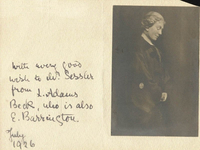 With every good
wish to Mr. Sessler
from L. Adams
Beck, who is also
E. Barrington
July
1926